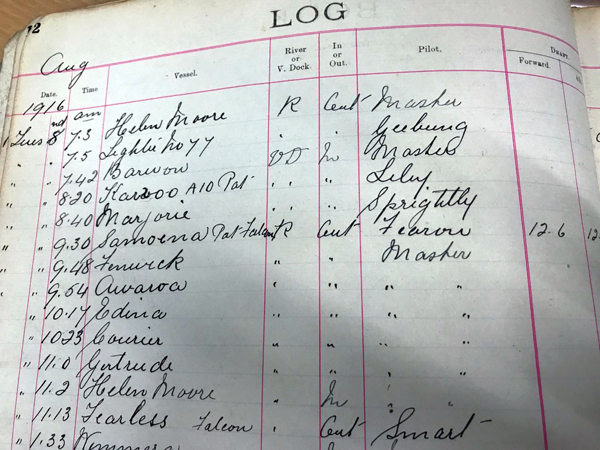 12 LOG
Aug
Date. Time Vessel. River or V. Dock. In or Out. Pilot. Draft Forward
1916 am
1 Tues 8 7.3 Helen Moore R Out Masher
" 7.5 Lighter No 77 " " Geebung
" 7.42 Barwon VD In Masher
" 8.20 Karoo A10 Pat " " Lily
" 8.40 Marjorie " " Sprightly
" 9.30 Samoena Pat Falcon R Out Fearon 12.6 12.
" 9.48 Fenwick " " Masher
" 9.54 Awaroa " " " "
" 10.17 Edina " " " "
" 10.23 Courier " " " "
" 11.0 Gertrude " " " "
" 11.2 Helen Moore " In " "
" 11.13 Fearless Falcon " Out Smart
" 1.33 Wimmera